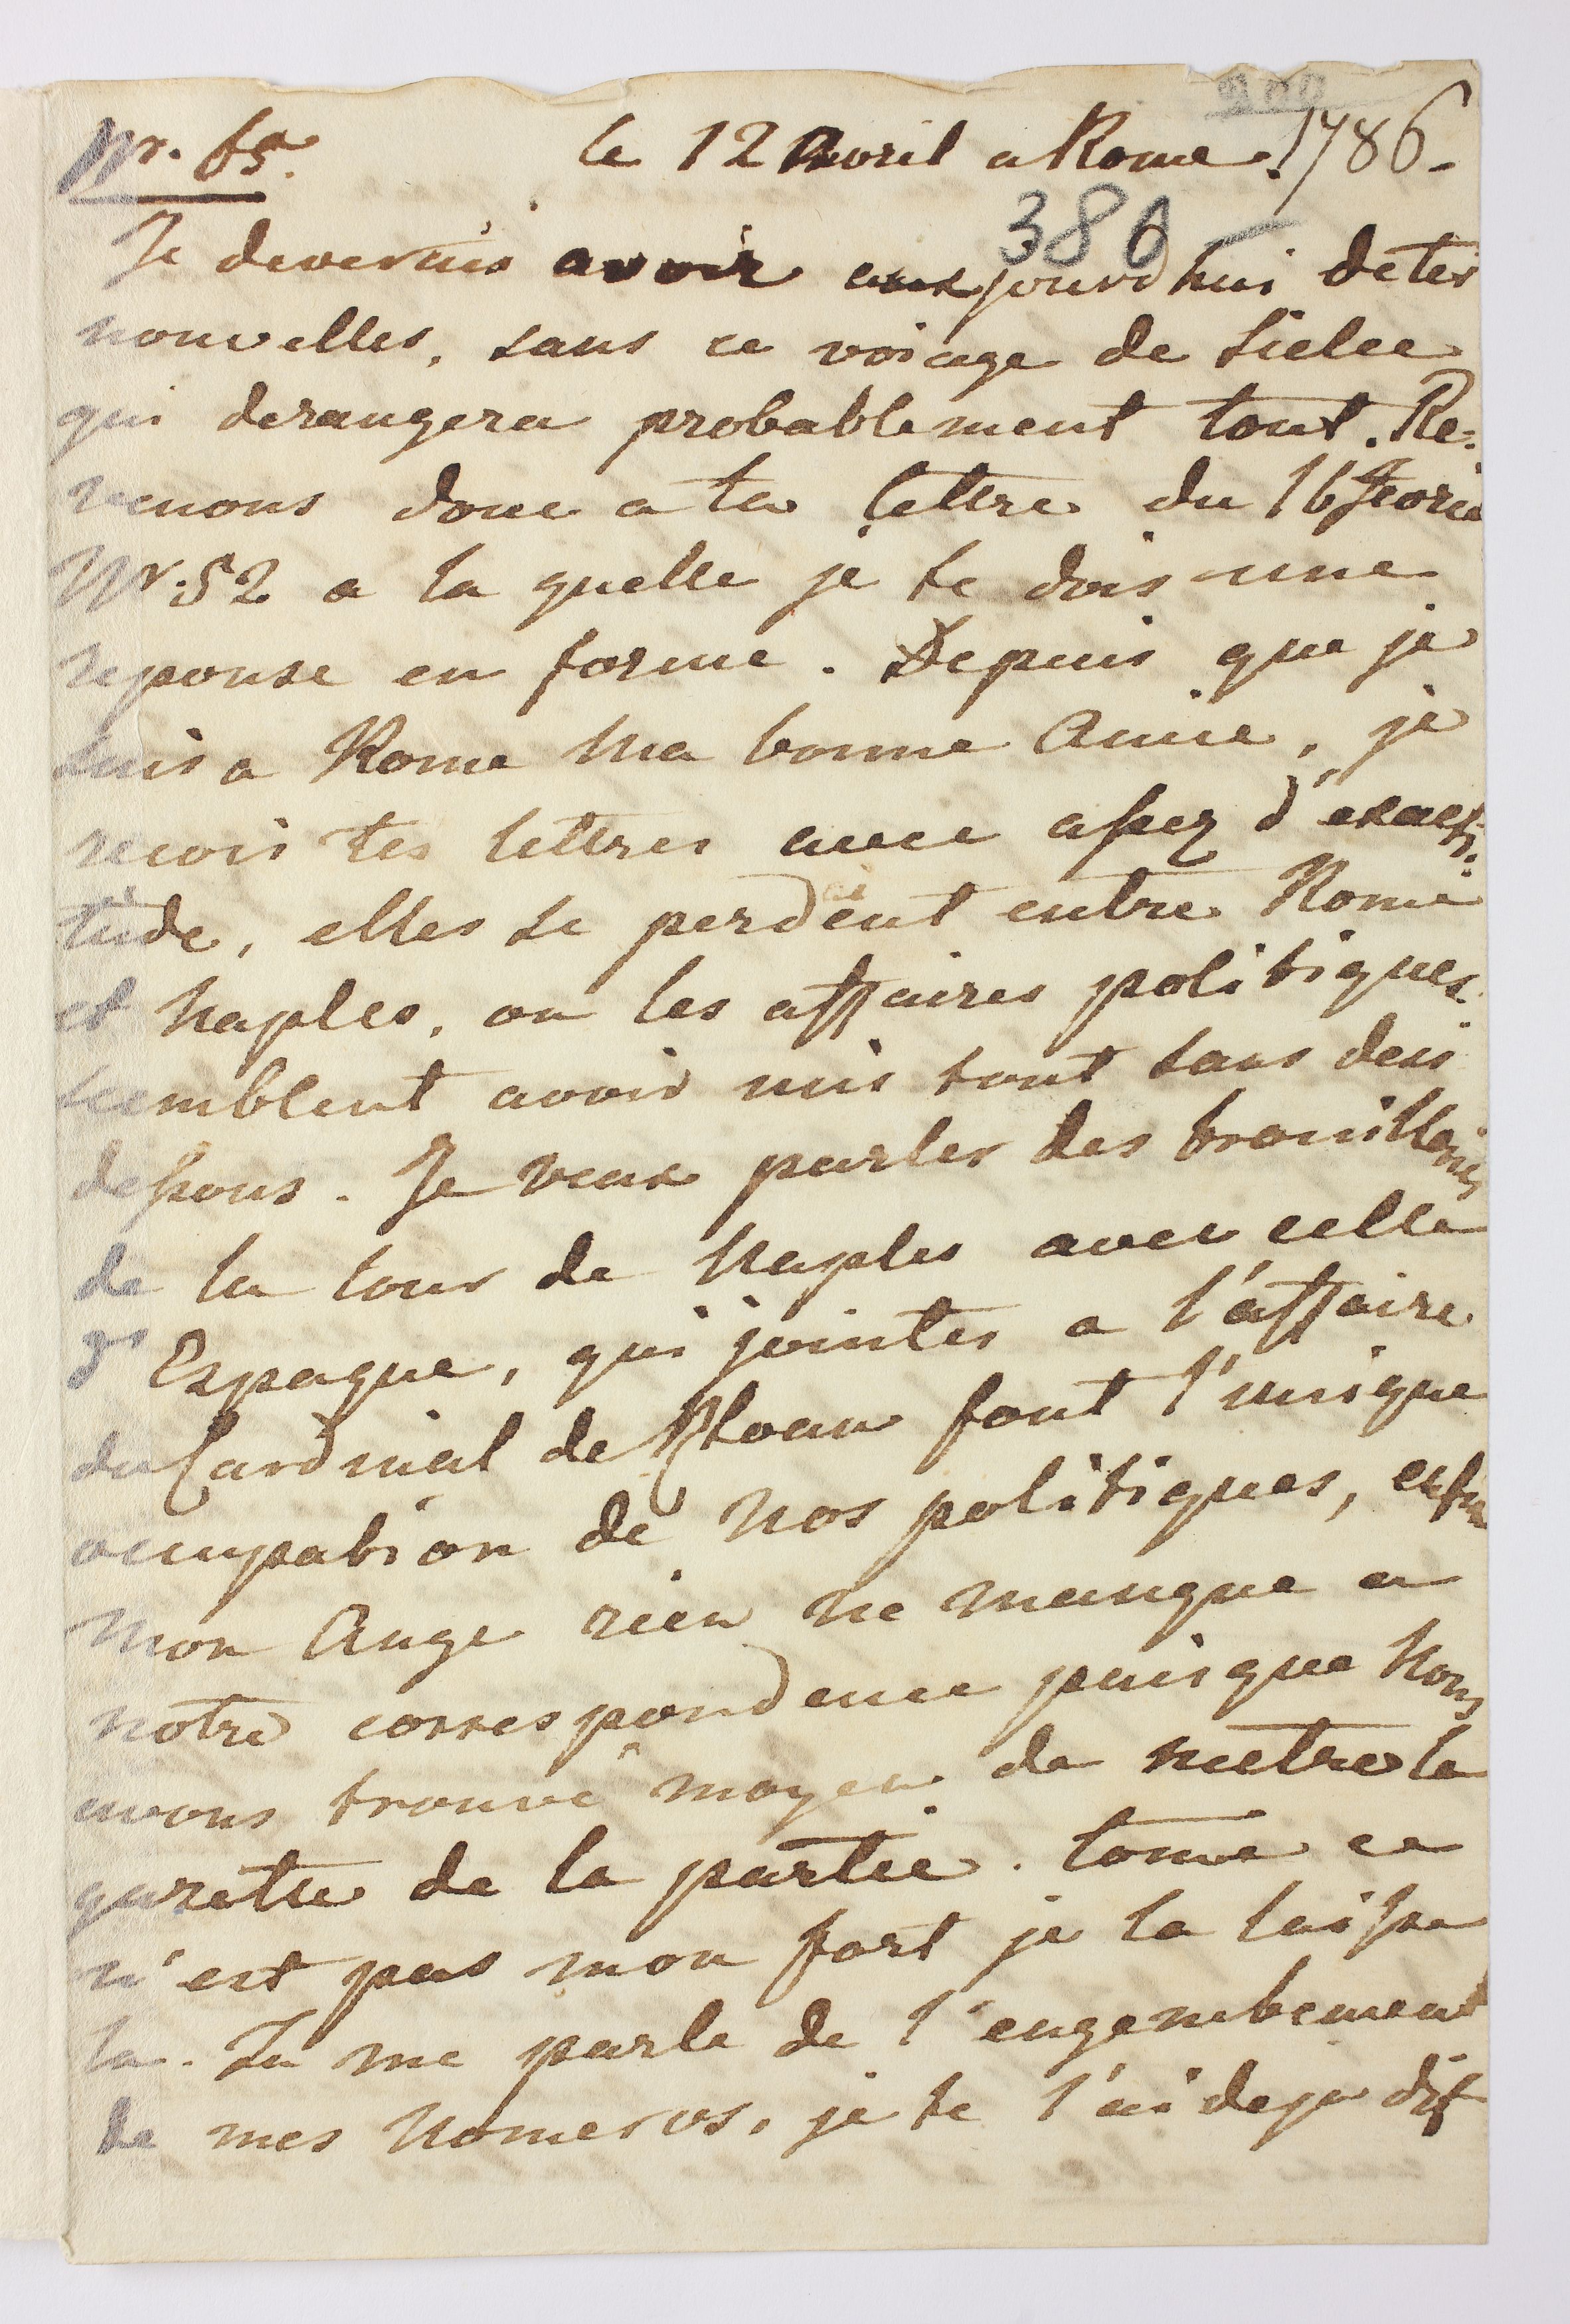 Nr. 65. le 12 Avril a Rome. 1786.
386
Je deverais avoir aux jourd'hui de tes
nouvelles, sans ce voiage de Sielee
qui derangera probablement tout. Re-
venons donc a ta lettre du 16 Fevrie
Nr. 52 a la quelle je te dois une
reponse en forme. Depuis que je
suis a Rome ma bonne Amie, je
recois tes lettres avec assez d'exacti-
tude, elles se perdent entre Rome
et Naples, ou les affaires politiques
semblent avoir mis tout sans deus
dessous. Je veux parler des brouilleries
de la Cour de Naples avec celle
d'Espagne, qui jointes a l'affaire
du Cardinal de Rhoan font l'unique
occupation de nos politiques, enfin
mon Ange rien ne manque a
notre correspondence puisque nous
avons trouvé moyen de mettre la
gazette de la partie. Come ce
n'est pas mon fort je la laisse
la. Tu me parle de l'engembement
de mes Nomeros, je te l'ai deja dit